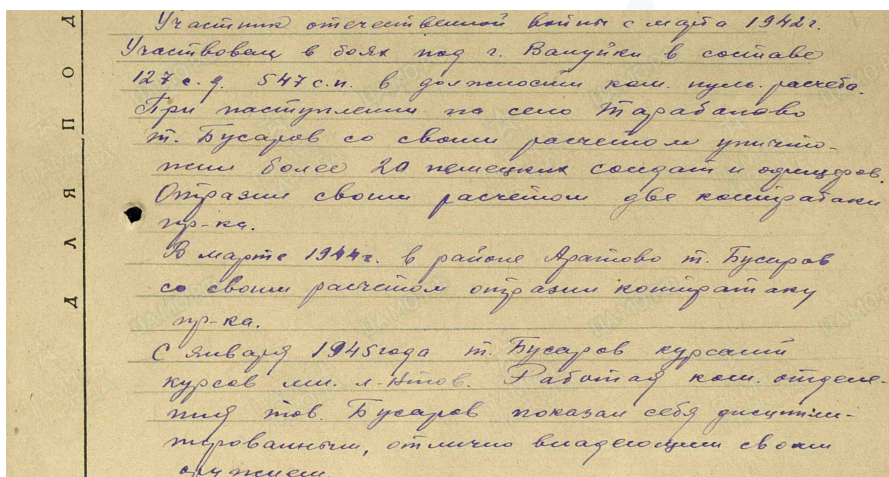 Участник отечественной войны с марта 1942г.
Участвовал в боях под г. Валуйки в составе
127 с.д. 547 с.п. в должности ком. пуль. расчета.
При наступлении на село Тарабаново
т. Бусаров со своим расчетом уничто-
жил более 20 немецких солдат и офицеров.
Отразил своим расчетом две контратаки
пр-ка.
В марте 1944г. в районе Аратово т. Бусаров
со своим расчетом отразил контратаку
пр-ка.
С января 1945 года т. Бусаров курсант
курсов мл. л-нтов. Работая ком. отделе-
ния тов. Бусаров показал себя дисципли-
нированным, отлично владеющим своим
оружием.
ДЛЯ ПОД